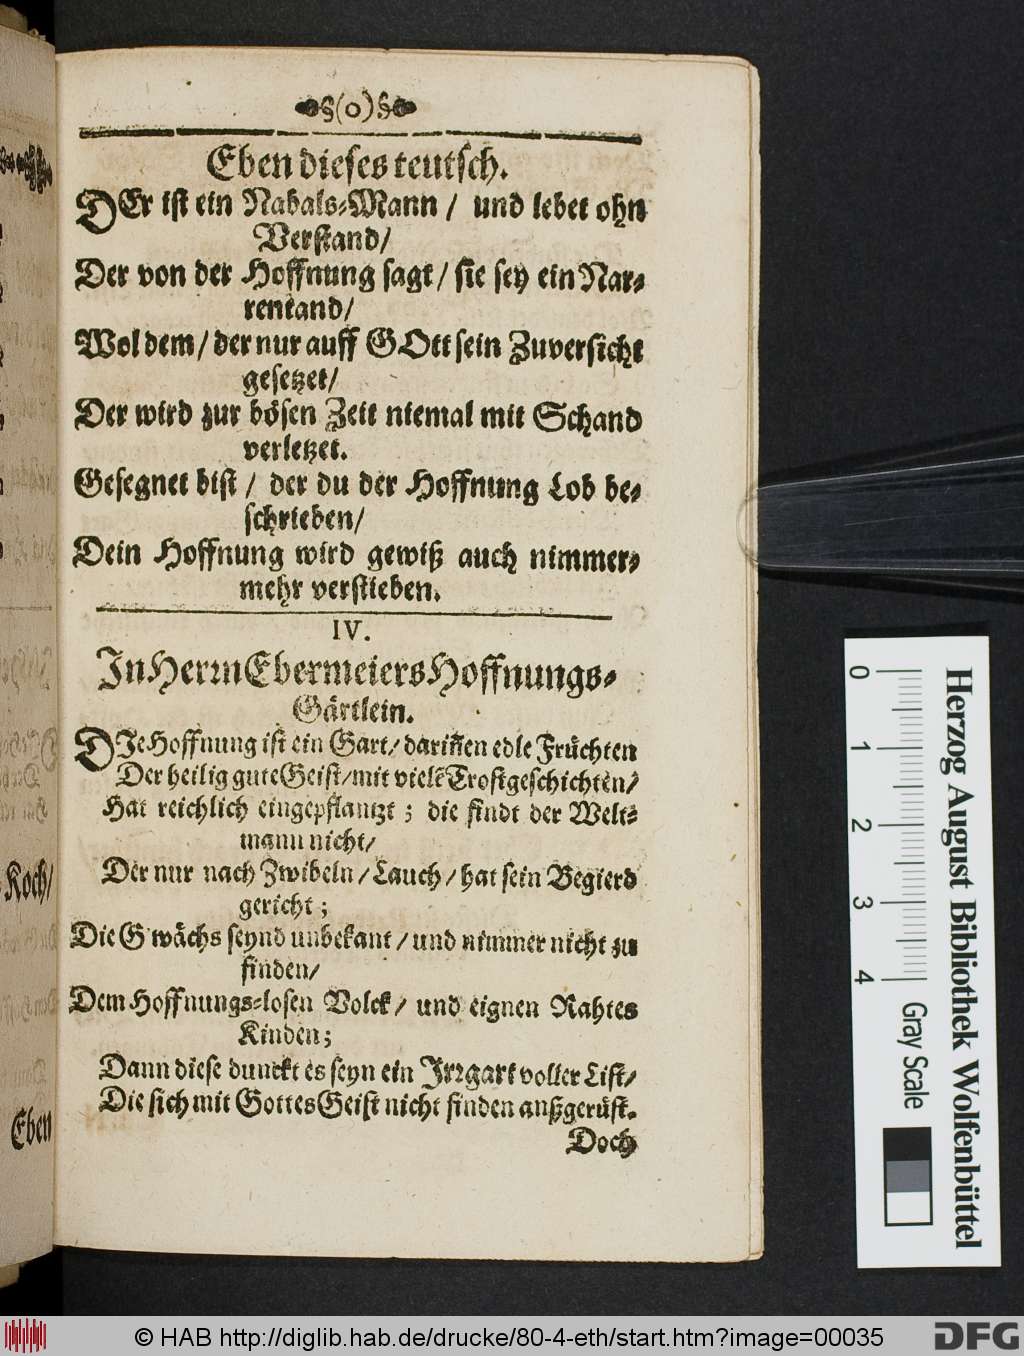 §(o)§
Eben dieses teutsch.
DEr ist ein Nabals-Mann / und lebet ohn
Verstand/
Der von der Hoffnung sagt / sie sey ein Nar-
rentand/
Wol dem / der nur auff GOtt sein Zuversicht
gesetzet/
Der wird zur bösen Zeit niemal mit Schand
verletzet.
Gesegnet bist / der du der Hoffnung Lob be-
schrieben/
Dein Hoffnung wird gewiß auch nimmer-
mehr verstieben.
IV.
In Herrn Ebermeiers Hoffnungs-
Gärtlein.
DIe Hoffnung ist ein Gart / dariñen edle Früchten
Der heilig gute Geist / mit vielẽ Trostgeschichten /
Hat reichlich eingepflantzt ; die findt der Welt-
mann nicht /
Der nur nach Zwibeln / Lauch / hat sein Begierd
gericht ;
Die G'wächs seynd unbekant / und nimmer nicht zu
finden /
Dem Hoffnungs-losen Volck / und eignen Rahtes
Kinden ;
Dann diese dunckt es seyn ein Irrgart voller List /
Die sich mit Gottes Geist nicht finden außgerüst.
Doch
Koch/
Eben
0 1 2 3 4
Gray Scale
Herzog August Bibliothek Wolfenbüttel
© HAB http://diglib.hab.de/drucke/80-4-eth/start.htm?image=00035
DFG